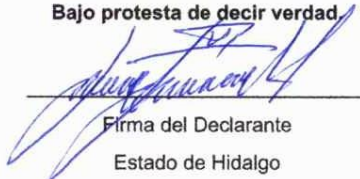 Bajo protesta de decir verdad,
Firma del Declarante
Estado de Hidalgo